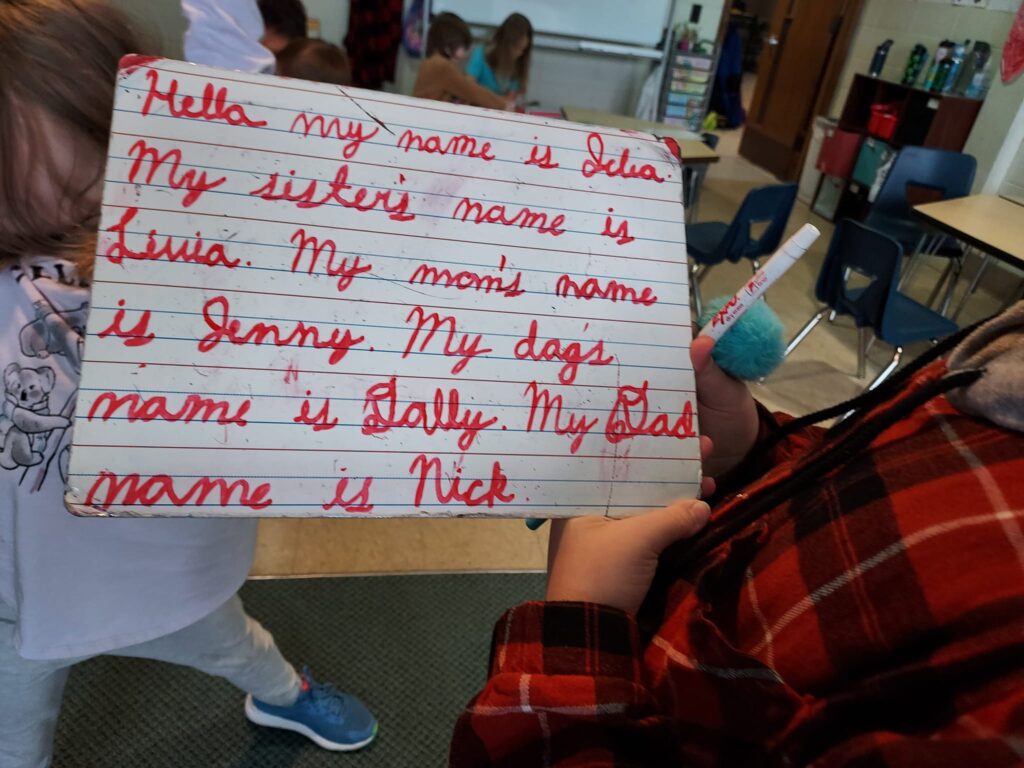 Hello my name is
My sister's name is
Livia. My mom's name
is Jenny. My dog's
name is My Dad
name is Nick.